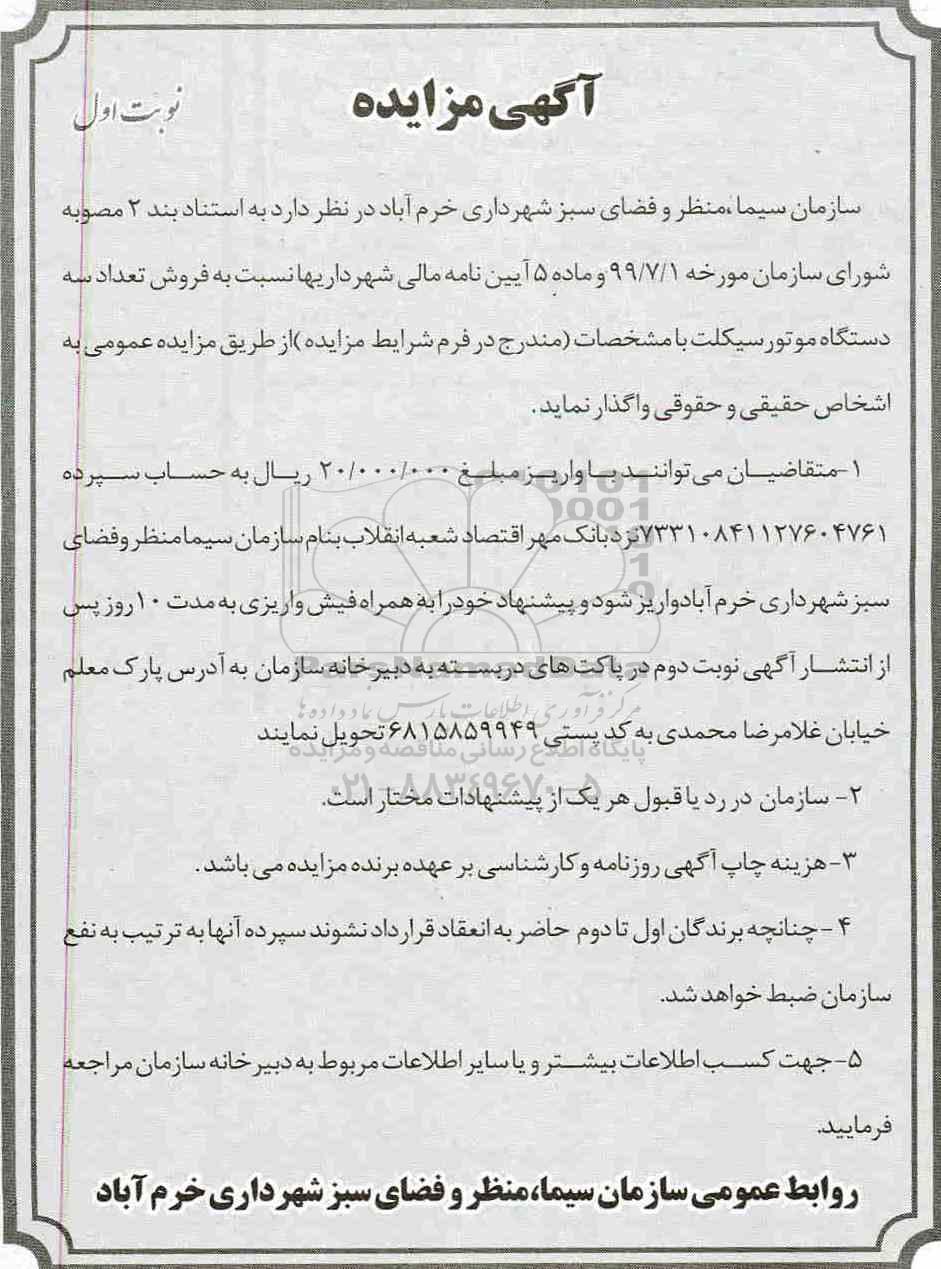 آگهی مزایده
نوبت اول
سازمان سیما ،منظر و فضای سبز شهرداری خرم آباد در نظر دارد به استناد بند ۲ مصوبه
شورای سازمان مورخه ۹۹/۷/۱ و ماده ۵ آیین نامه مالی شهرداریها نسبت به فروش تعداد سه
دستگاه موتورسیکلت با مشخصات (مندرج در فرم شرایط مزایده )از طریق مزایده عمومی به
اشخاص حقیقی و حقوقی واگذار نماید.
۱-متقاضیان می توانند با واریز مبلغ ۲۰/۰۰۰/۰۰۰ ریال به حساب سپرده
۷۳۳۱۰۸۴۱۱۲۷۶۰۴۷۶۱نزد بانک مهر اقتصاد شعبه انقلاب بنام سازمان سیما منظر وفضای
سبز شهرداری خرم آبادواریز شود و پیشنهاد خودرا به همراه فیش واریزی به مدت ۱۰ روز پس
از انتشار آگهی نوبت دوم در پاکت های دربسته به دبیرخانه سازمان به آدرس پارک معلم
خیابان غلامرضا محمدی به کد پستی ۶۸۱۵۸۵۹۹۴۹ تحویل نمایند
۲- سازمان در رد یا قبول هر یک از پیشنهادات مختار است.
۳-هزینه چاپ آگهی روزنامه وکارشناسی بر عهده برنده مزایده می باشد.
۴ -چنانچه برندگان اول تا دوم حاضر به انعقاد قرارداد نشوند سپرده آنها به ترتیب به نفع
سازمان ضبط خواهد شد.
۵-جهت کسب اطلاعات بیشتر و یا سایر اطلاعات مربوط به دبیرخانه سازمان مراجعه
فرمایید.
روابط عمومی سازمان سیما،منظر و فضای سبز شهرداری خرم آباد
مرکز فرآوری اطلاعات پارس نماد داده ها
پایگاه اطلاع رسانی مناقصه و مزایده
۰۲۱-۸۸۳۴۹۶۷۰-۵